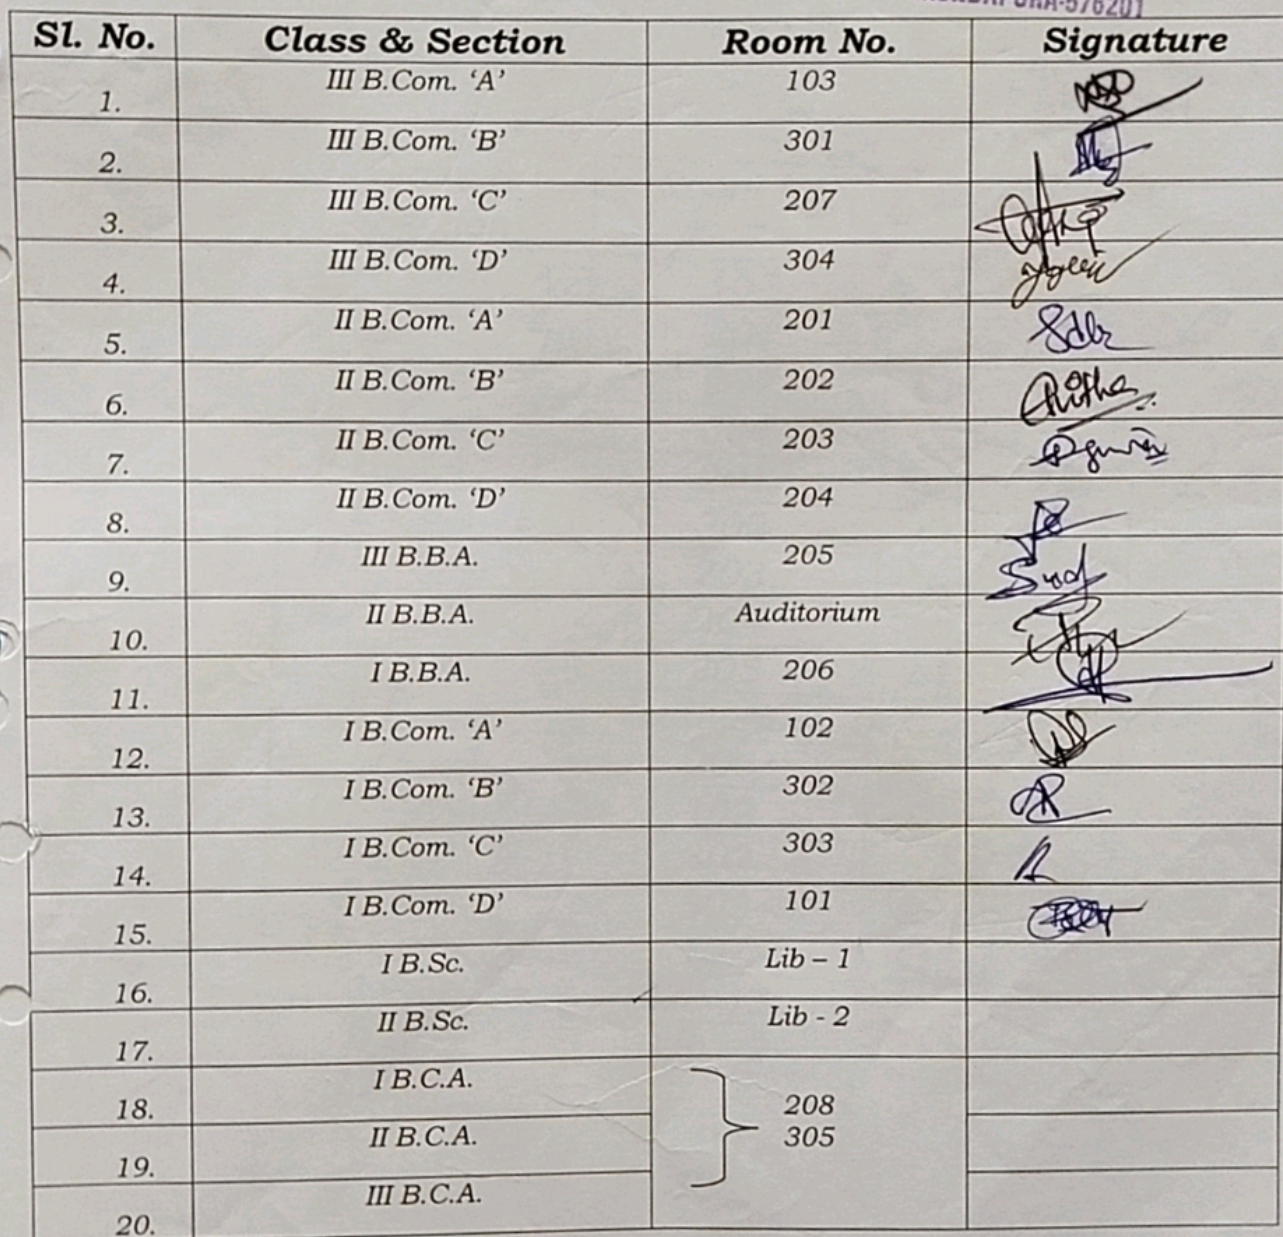 576201
Sl. No. Class & Section Room No. Signature
1. III B.Com. ‘A’ 103
2. III B.Com. ‘B’ 301
3. III B.Com. ‘C’ 207
4. III B.Com. ‘D’ 304
5. II B.Com. ‘A’ 201
6. II B.Com. ‘B’ 202
7. II B.Com. ‘C’ 203
8. II B.Com. ‘D’ 204
9. III B.B.A. 205
10. II B.B.A. Auditorium
11. I B.B.A. 206
12. I B.Com. ‘A’ 102
13. I B.Com. ‘B’ 302
14. I B.Com. ‘C’ 303
15. I B.Com. ‘D’ 101
16. I B.Sc. Lib – 1
17. II B.Sc. Lib - 2
18. I B.C.A. 208
19. II B.C.A. 305
20. III B.C.A.